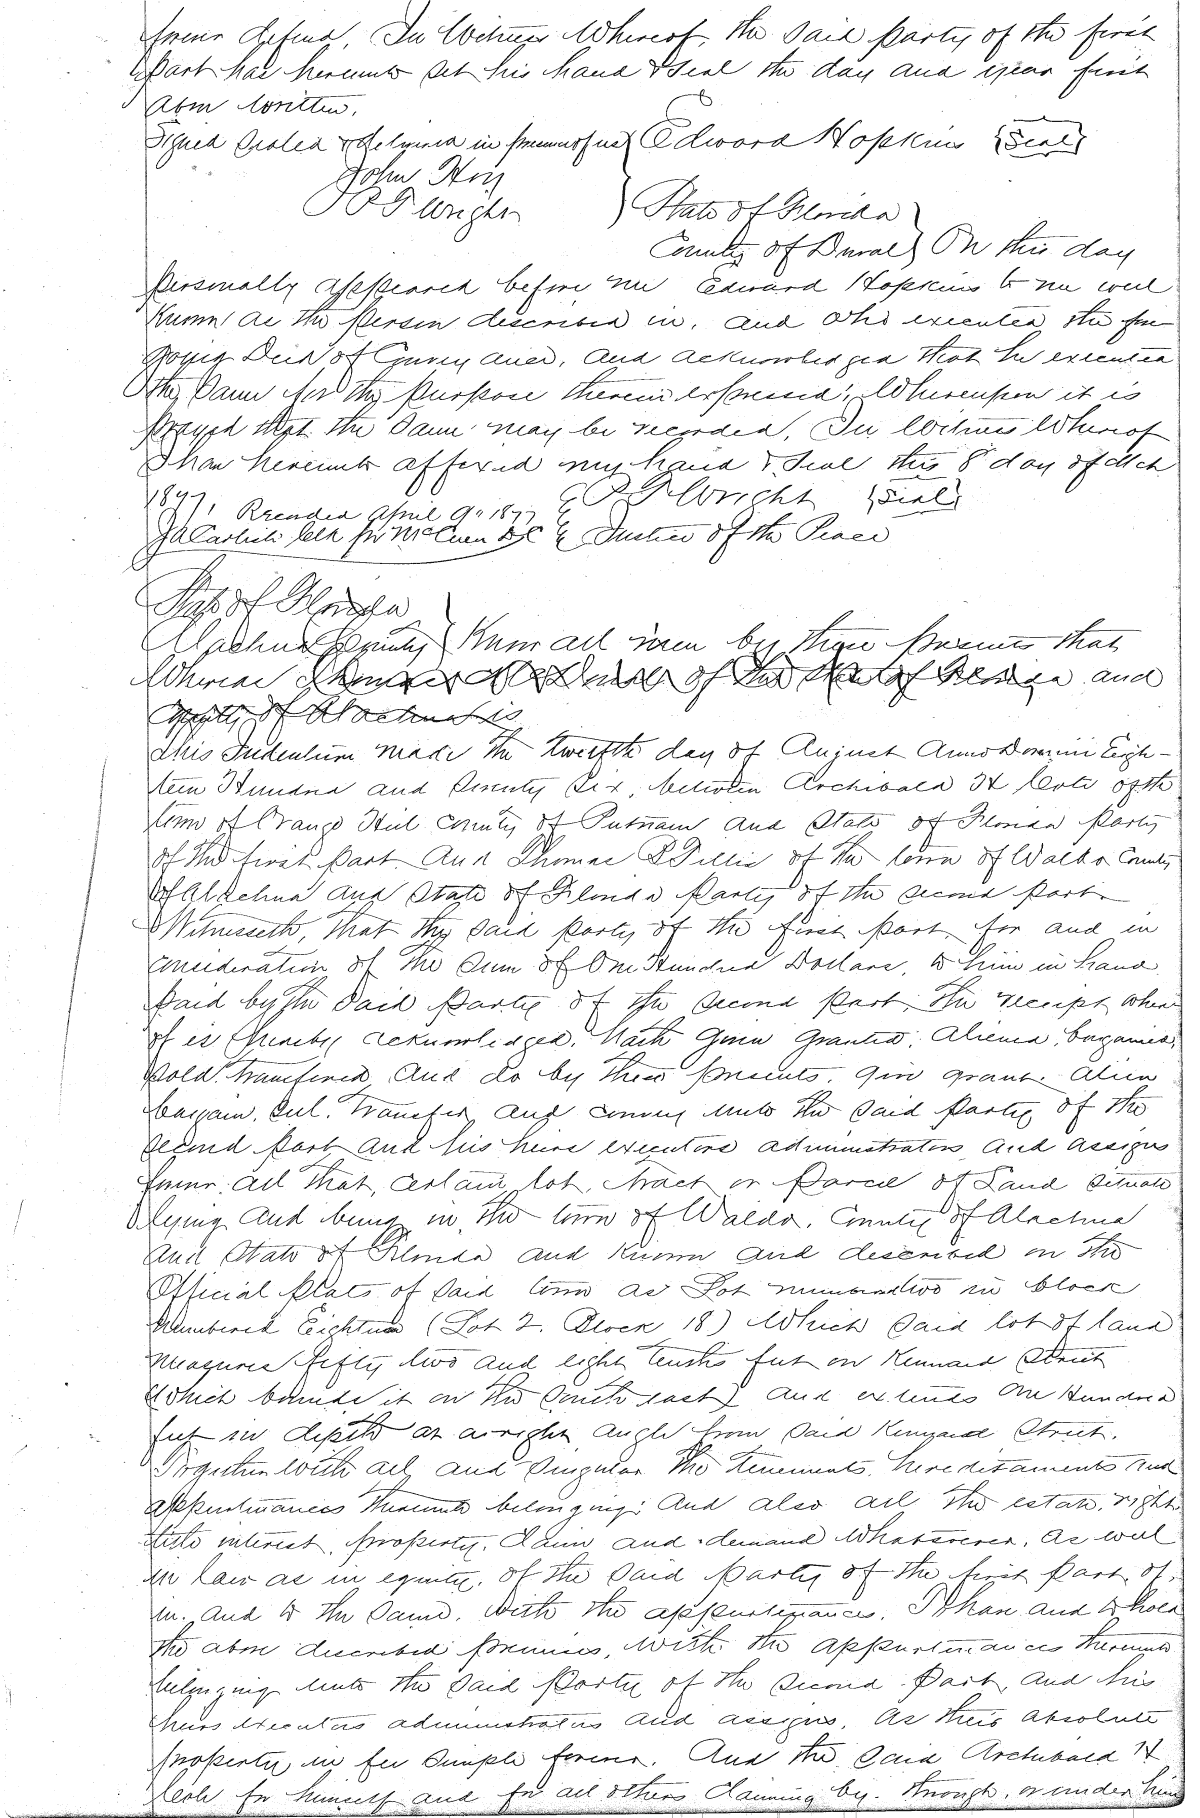 forever defend. In Witness Whereof, the said party of the first
part has hereunto set his hand & seal the day and year first
above written.
Signed sealed & delivered in presence of us } Edward Hopkins {Seal}
John Hoy
P F Wright } State of Florida }
County of Duval } On this day
personally appeared before me Edward Hopkins to me well
Known as the person described in, and who executed the fore
going Deed of Conveyance, and acknowledged that he executed
the same for the purpose therein expressed; Whereupon it is
prayed that the same may be recorded. In Witness Whereof
I have hereunto affixed my hand & seal this 8 day of Mch
1877, P F Wright {Seal}
Recorded April 9" 1877
J A Carlisle Clk pr McCuen D.C. Justice of the Peace
State of Florida }
Alachua County } Know all men by these presents that
Whereas of the State of Florida and
County of Alachua is
this Indenture made the twelfth day of August Anno Domini Eigh-
teen Hundred and Seventy Six, between Archibald H Cole of the
town of Orange Hill County of Putnam and State of Florida Party
of the first part And Thomas P Tillis of the town of Waldo County
of Alachua and State of Florida Party of the second part
Witnesseth, that the said party of the first part, for and in
consideration of the sum of One Hundred Dollars, to him in hand
paid by the said Party of the second part, the receipt where
of is hereby acknowledged. Hath Given granted, aliened, bargained,
sold, transferred And do by these presents, give grant, alien
bargain, sell, transfer and convey unto the said party of the
second part and his heirs executors administrators and assigns
forever, all that, certain lot, tract or parcel of Land situate
lying and being in the town of Waldo, County of Alachua
and State of Florida and known and described on the
Official plats of said town as Lot numbered two in block
numbered Eighteen (Lot 2. Block 18) Which said lot of land
measures fifty two and eight tenths feet on Kennard Street
(Which bounds it on the South east) and extends One Hundred
feet in depth at a right angle from said Kennard Street.
Together with all and singular the tenements, hereditaments and
appurtenances thereunto belonging: And also all the estate, right
title interest, property, claim and demand whatsoever, as well
in law as in equity, of the said party of the first part, of,
in, and to the same, with the appurtenances. To have and to hold
the above described premises, with the appurtenances thereunto
belonging unto the said Party of the second part, and his
heirs executors administrators and assigns, as their absolute
property in fee simple forever. And the said Archibald H
Cole for himself and for all others claiming by, through, or under him